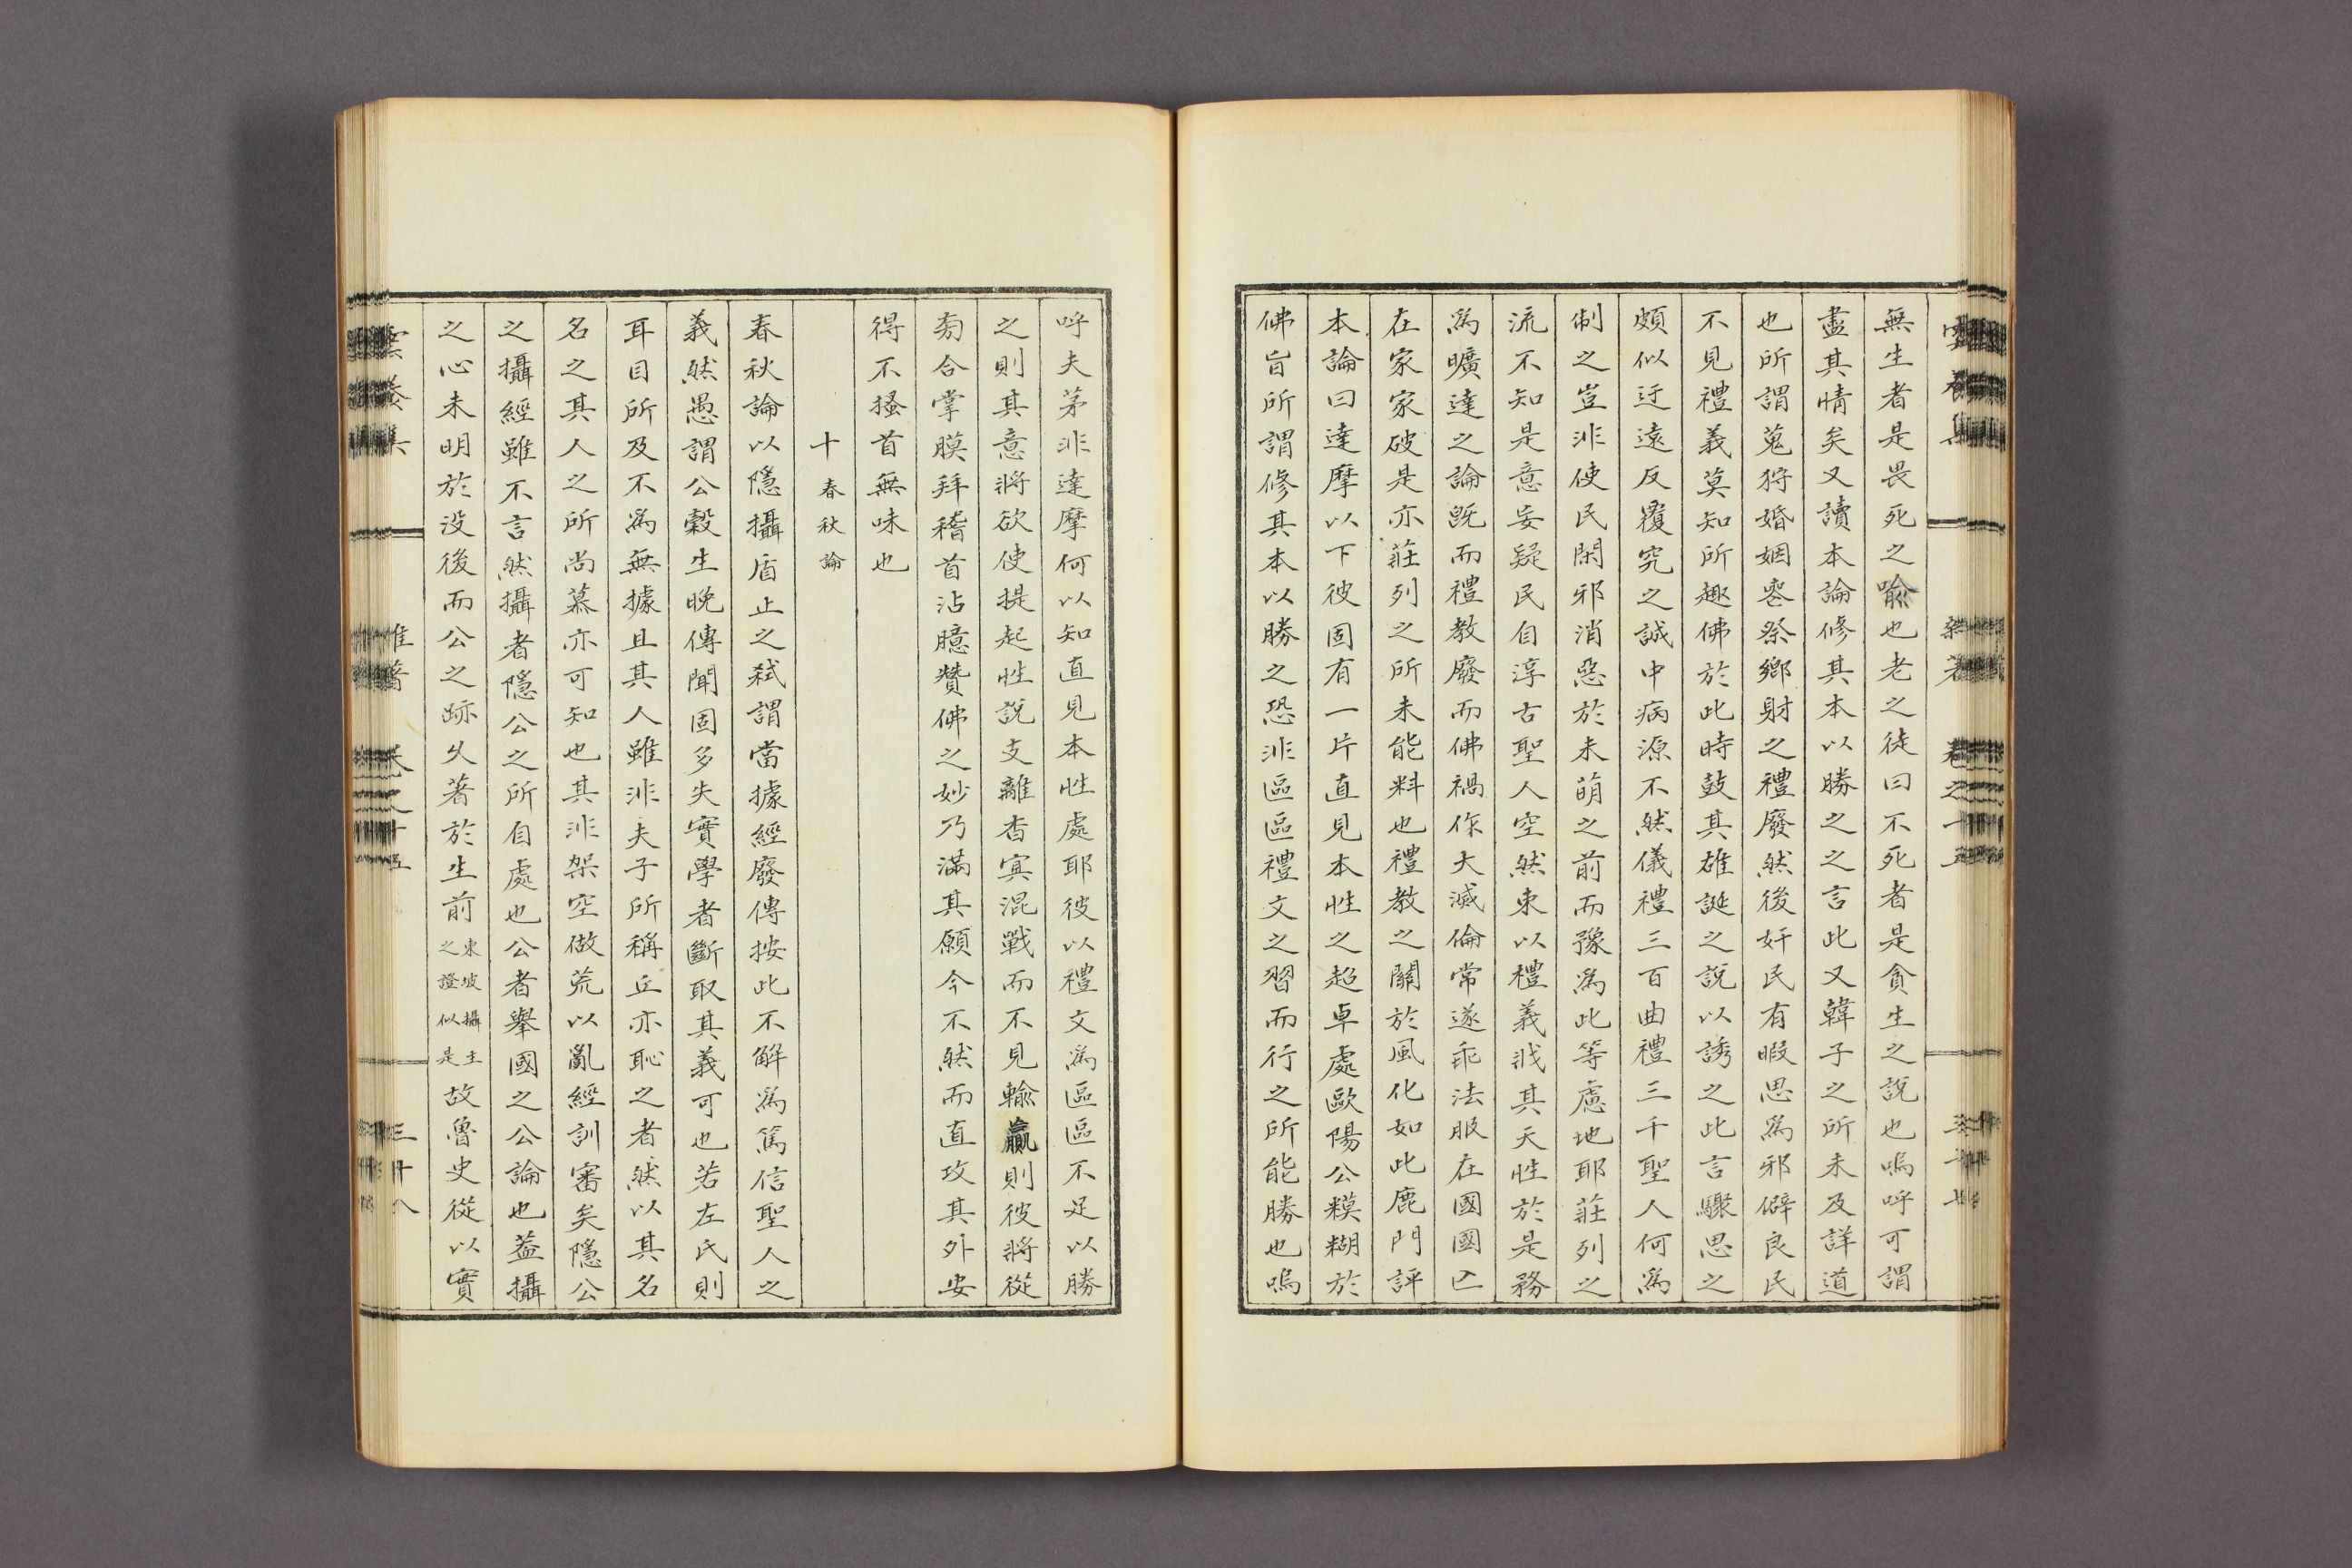 無生者是畏死之喩也老之徒曰不死者是貪生之說也嗚呼可謂
盡其情矣又讀本論修其本以勝之之言此又韓子之所未及詳道
也所謂蒐狩婚姻喪祭鄉射之禮廢然後奸民有暇思爲邪僻良民
不見禮義莫知所趣佛於此時鼓其雄誕之說以誘之此言驟思之
頗似迂遠反覆究之誠中病源不然儀禮三百曲禮三千聖人何爲
制之豈非使民閑邪消惡於未萌之前而豫爲此等慮地耶莊列之
流不知是意妄疑民自淳古聖人空然束以禮義戕其天性於是務
爲曠達之論旣而禮教廢而佛禍作大滅倫常遂乖法服在國國亡
在家家破是亦莊列之所未能料也禮教之關於風化如此鹿門評
本論曰達摩以下彼固有一片直見本性之超卓處歐陽公糢糊於
佛旨所謂修其本以勝之恐非區區禮文之習而行之所能勝也嗚
呼夫茅非達摩何以知直見本性處耶彼以禮文爲區區不足以勝
之則其意將欲使提起性說支離杳冥混戰而不見輸贏則彼將從
旁合掌膜拜稽首沾臆贊佛之妙乃滿其願今不然而直攻其外安
得不搔首無味也
十春秋論
春秋論以隱攝盾止之弑謂當據經廢傳按此不解爲篤信聖人之
義然愚謂公穀生晚傳聞固多失實學者斷取其義可也若左氏則
耳目所及不爲無據且其人雖非夫子所稱丘亦恥之者然以其名
名之其人之所尚慕亦可知也其非架空做荒以亂經訓審矣隱公
之攝經雖不言然攝者隱公之所自處也公者舉國之公論也蓋攝
之心未明於没後而公之跡久著於生前東坡攝主之證似是故魯史從以實
雜著
三十八